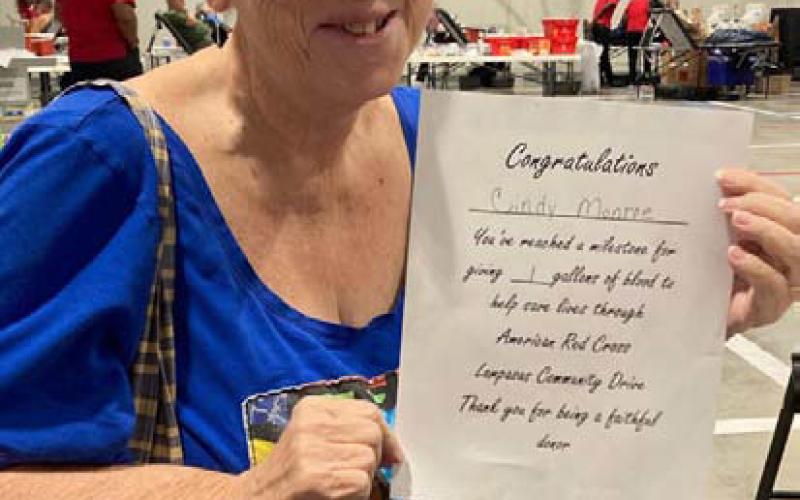 Congratulations
Cindy Monroe
You've reached a milestone for
giving 1 gallons of blood to
help save lives through
American Red Cross
Lampasas Community Drive
Thank you for being a faithful
donor